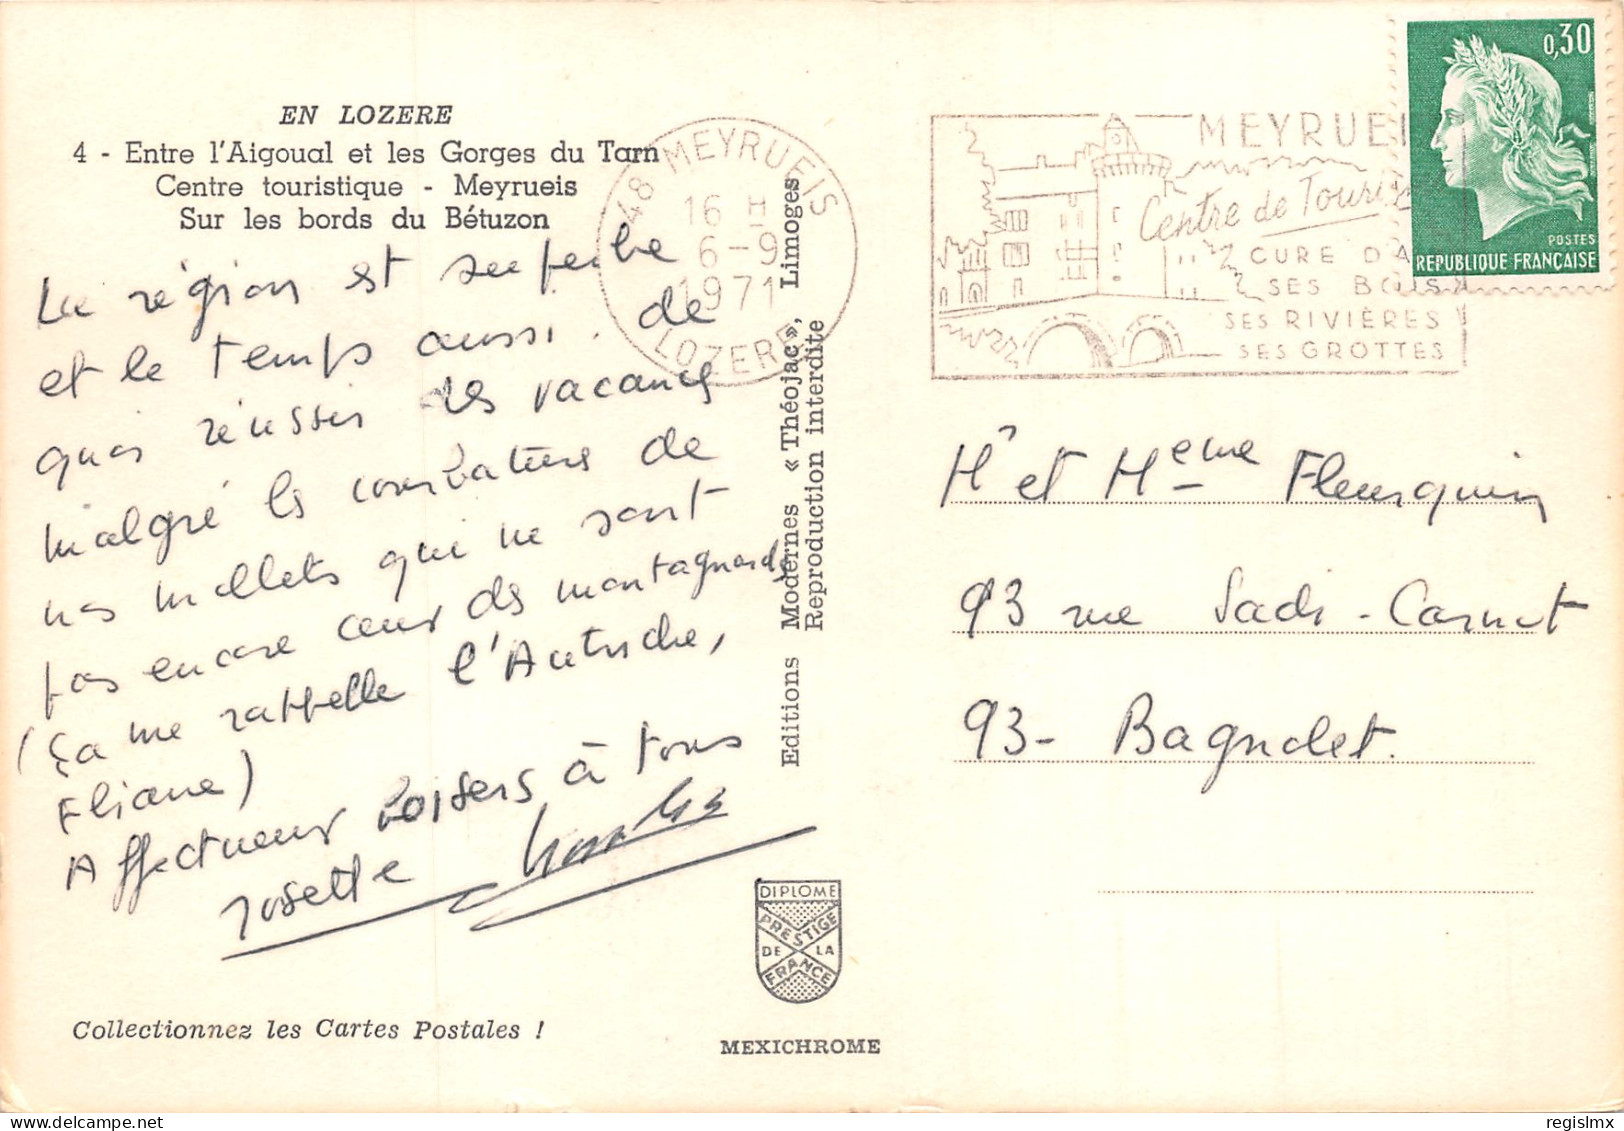 EN LOZERE
4 - Entre l'Aigoual et les Gorges du Tarn
Centre touristique - Meyrueis
Sur les bords du Bétuzon
La région est superbe
et le temps aussi. de
quoi réussir des vacances
malgré les courbatures de
nos mollets qui ne sont
pas encore ceux des montagnards
(ça me rappelle l'Autriche,
Eliane)
Affectueux baisers à tous
Josette
Collectionnez les Cartes Postales !
48 MEYRUEIS
16 H
6-9
1971
LOZERE
Editions Modernes « Théojac », Limoges
Reproduction interdite
DIPLOME
PRESTIGE
DE LA
FRANCE
MEXICHROME
MEYRUEI
Centre de Touri
CURE D'A
SES BOIS
SES RIVIÈRES
SES GROTTES
0,30
POSTES
REPUBLIQUE FRANÇAISE
Mr et Meme Fleurquin
93 rue Sadi-Carnot
93- Bagnolet.
regislmx